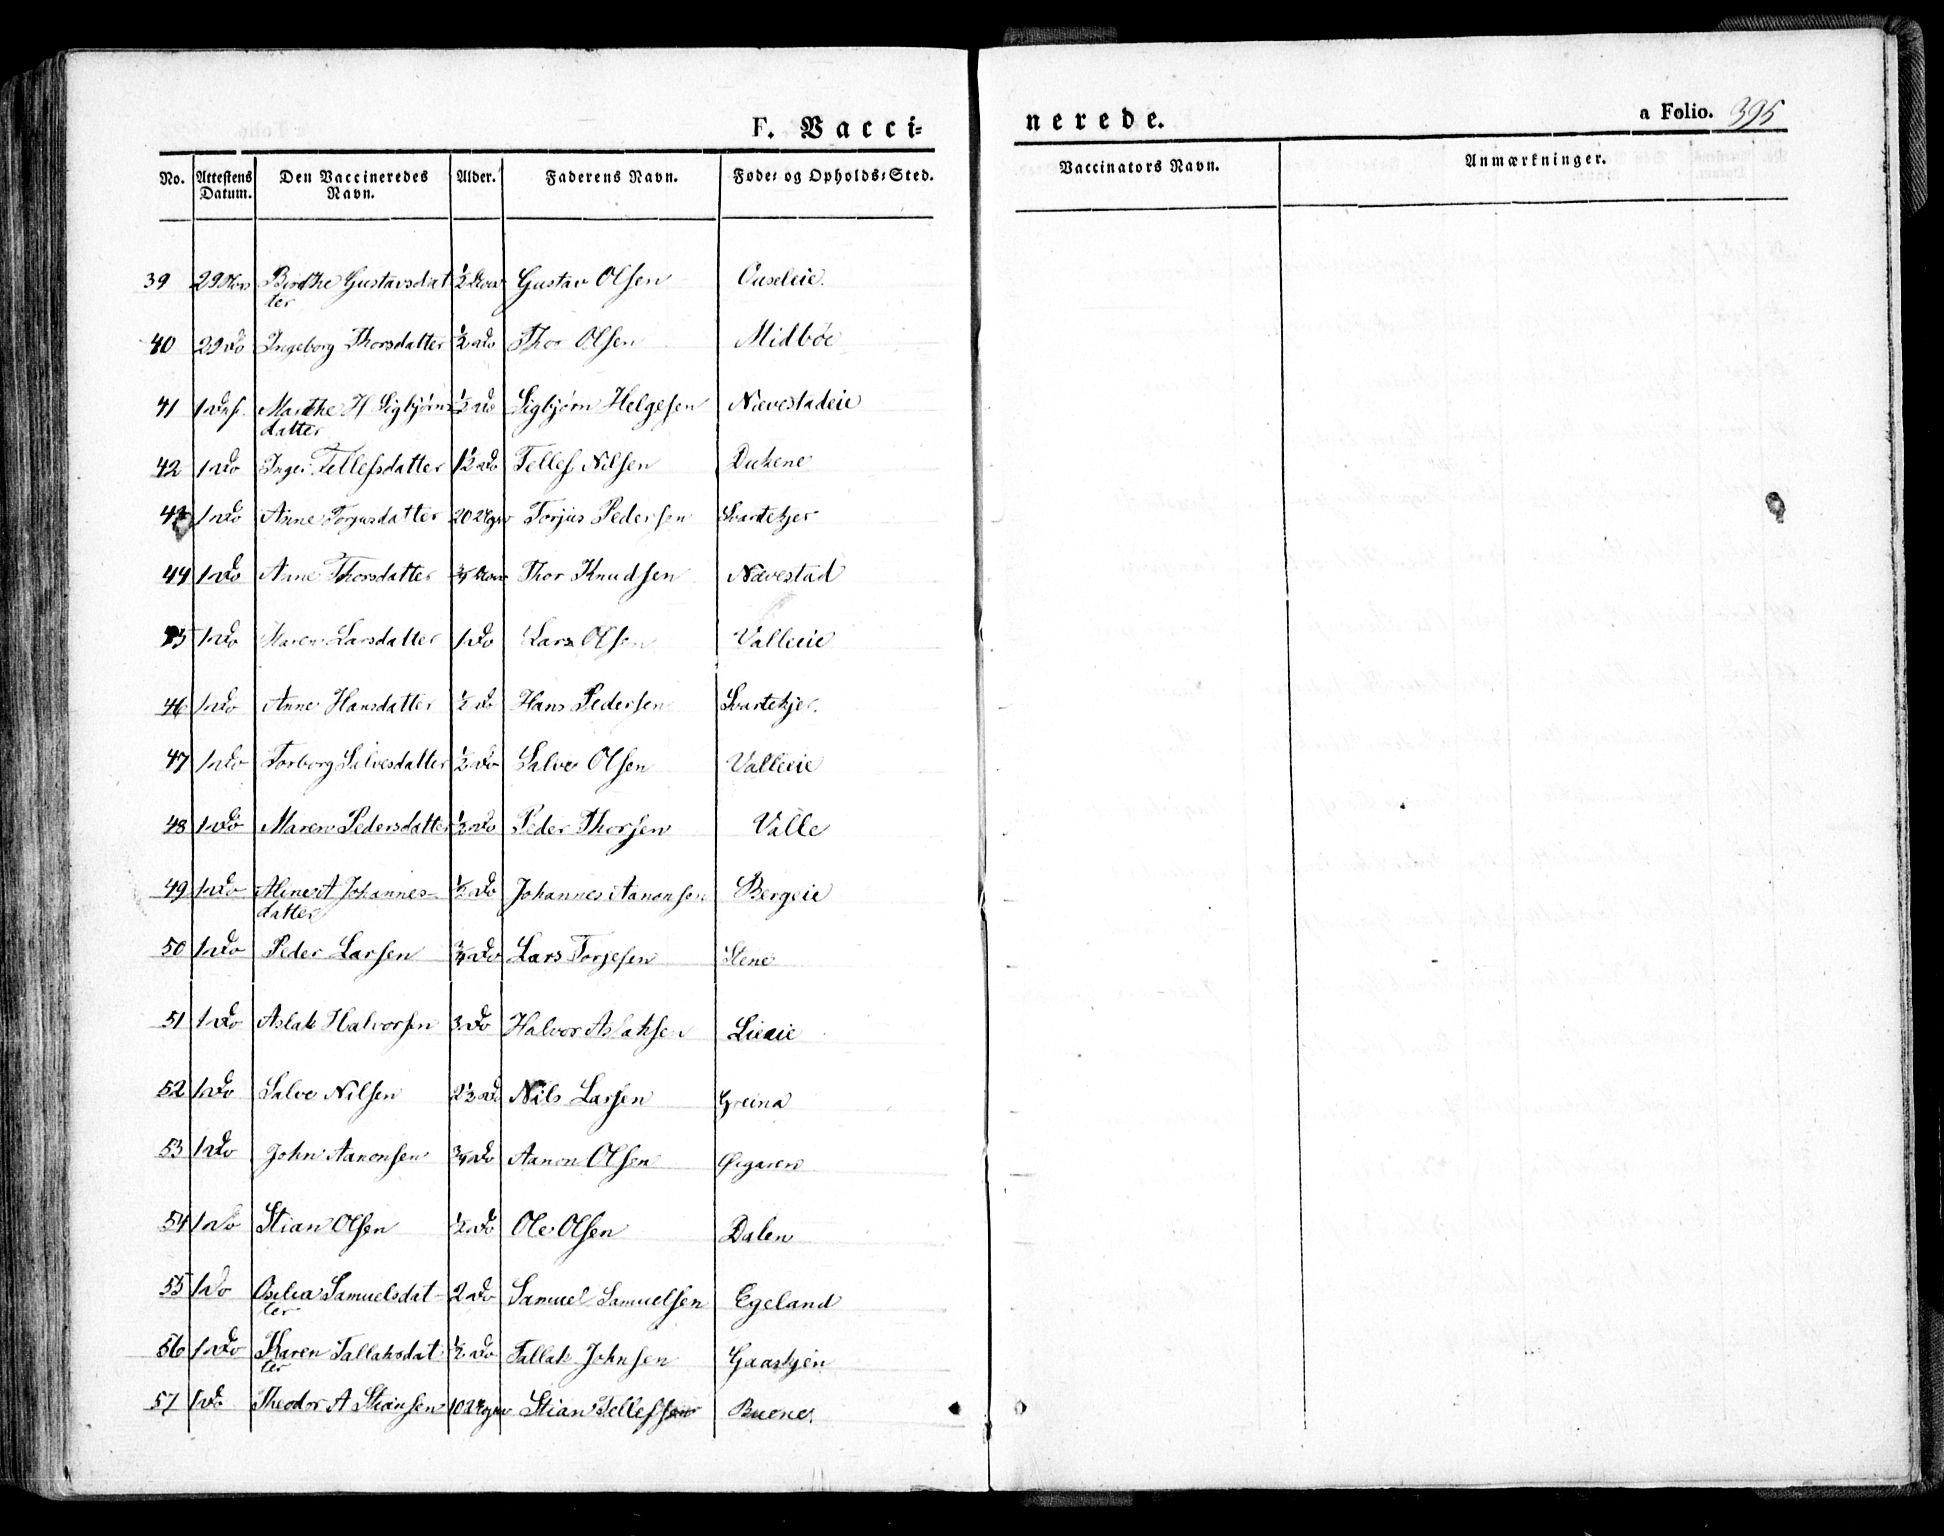 F. Vacci=
nerede.
a Folio. 395
No. Attestens Datum. Den Vaccineredes Navn. Alder. Faderens Navn. Føde= og Opholds=Sted.
Vaccinators Navn. Anmærkninger.
39 29 Nov Birthe Gustavsdat 1/2 Gustav Olsen Ouseleie
ter
40 29 do Ingeborg Thorsdatter 1/2 do Thor Olsen Midbøe
41 1 Marthe H Sigbjørns 1/2 do Sigbjørn Helgesen Nævestadeie
datter
42 1 do Inger Tellefsdatter 1 1/2 do Tellef Nilsen Dukene
43 1 do Anne Torjusdatter 20 Uger Torjus Pedersen Svartekjer
44 1 do Anne Thorsdatter 3/4 Thor Knudsen Nævestad
45 1 do Maren Larsdatter 1 do Lars Olsen Valleeie
46 1 do Anne Hansdatter 1/2 do Hans Pedersen Svartekjer.
47 1 do Torborg Salvesdatter 1/2 do Salve Olsen Valleeie
48 1 do Maren Pedersdatter 1/2 do Peder Thorsen Valle
49 1 do A Johannes- 1/2 do Johannes Aanonsen Bergeie
datter
50 1 do Peder Larsen 3/4 do Lars Torjesen Stene
51 1 do Aslak Halvorsen 3 do Halvor Aslaksen Lieeie
52 1 do Salve Nilsen 2 1/2 do Nils Larsen Greina
53 1 do John Aanonsen 3/4 do Aanon Olsen Øigaren
54 1 do Stian Olsen 1/2 do Ole Olsen Dalen
55 1 do Oselia Samuelsdat- 2 do Samuel Samuelsen Egeland
ter
56 1 do Karen Tallaksdat 1/2 do Tallak Johnsen Gaaskjen
ter
57 1 do Theodor A Stiansen 10 Uger Stian Tellefsen Buene.